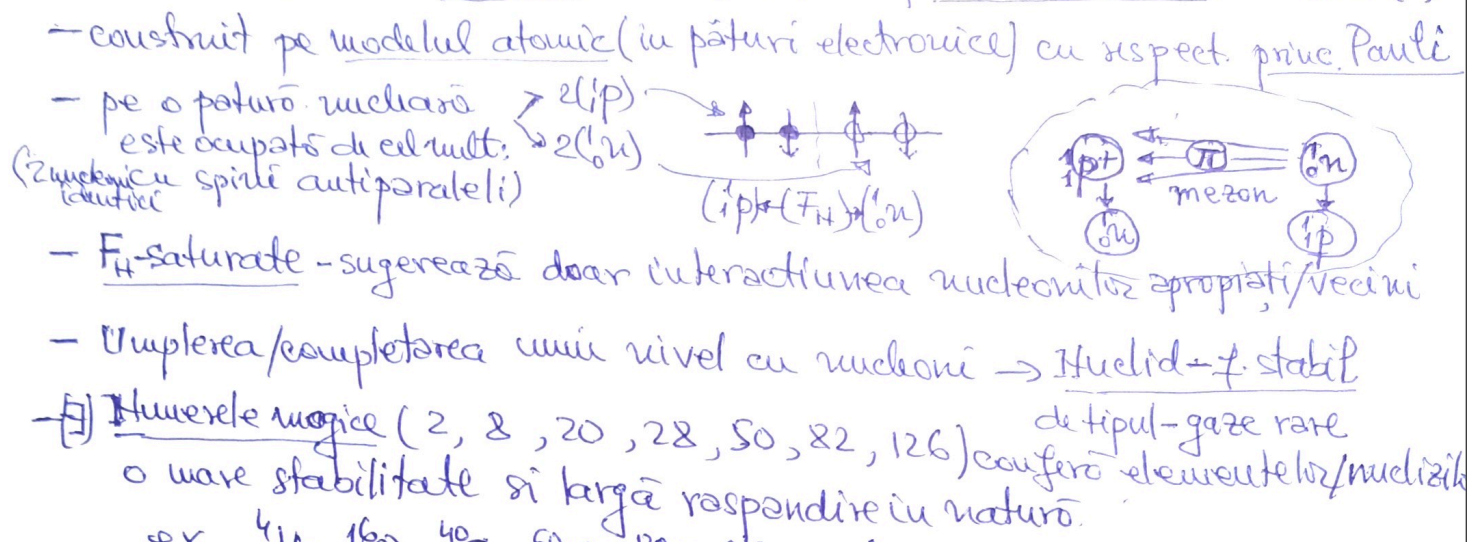 – construit pe modelul atomic (în pături electronice) cu respect. princ. Pauli
– pe o pătură nucleară → 2(¹₁p)
este ocupată de cel mult: → 2(¹₀n)
(2 nucleoni cu spini antiparaleli)
identici
(¹₁p)↔(F_N)↔(¹₀n)
¹₁p+ π ¹₀n
mezon
¹₀n ¹₁p
– F_N-saturate – sugerează doar interacțiunea nucleonilor apropiați/vecini
– Umplerea/completarea unui nivel cu nucleoni → Nuclid – f. stabil
de tipul – gaze rare
– ∃ Numerele magice (2, 8, 20, 28, 50, 82, 126) conferă elementelor/nuclizilor
o mare stabilitate și largă răspândire în natură.